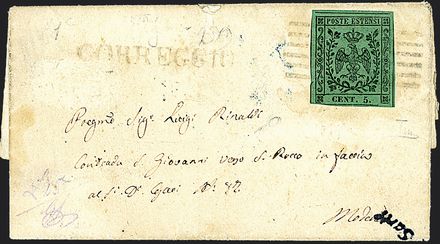 CORREGGIO
POSTE ESTENSI
CENT. 5.
Pregmo Sigr Luigi Rinaldi
Contrada S. Giovanni verso S. Rocco in faccia
al N. 
Modena